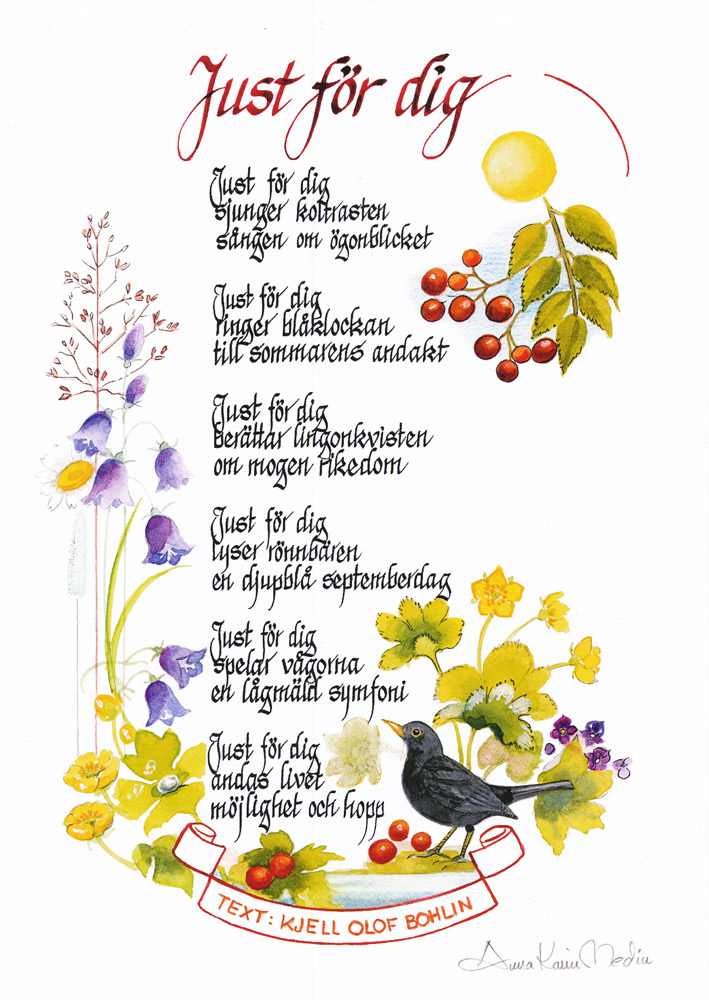 Just för dig
Just för dig
sjunger koltrasten
sången om ögonblicket
Just för dig
ringer blåklockan
till sommarens andakt
Just för dig
berättar lingonkvisten
om mogen rikedom
Just för dig
lyser rönnbären
en djupblå septemberdag
Just för dig
spelar vågorna
en lågmäld symfoni
Just för dig
andas livet
möjlighet och hopp
TEXT: KJELL OLOF BOHLIN
Anna Karin Medin